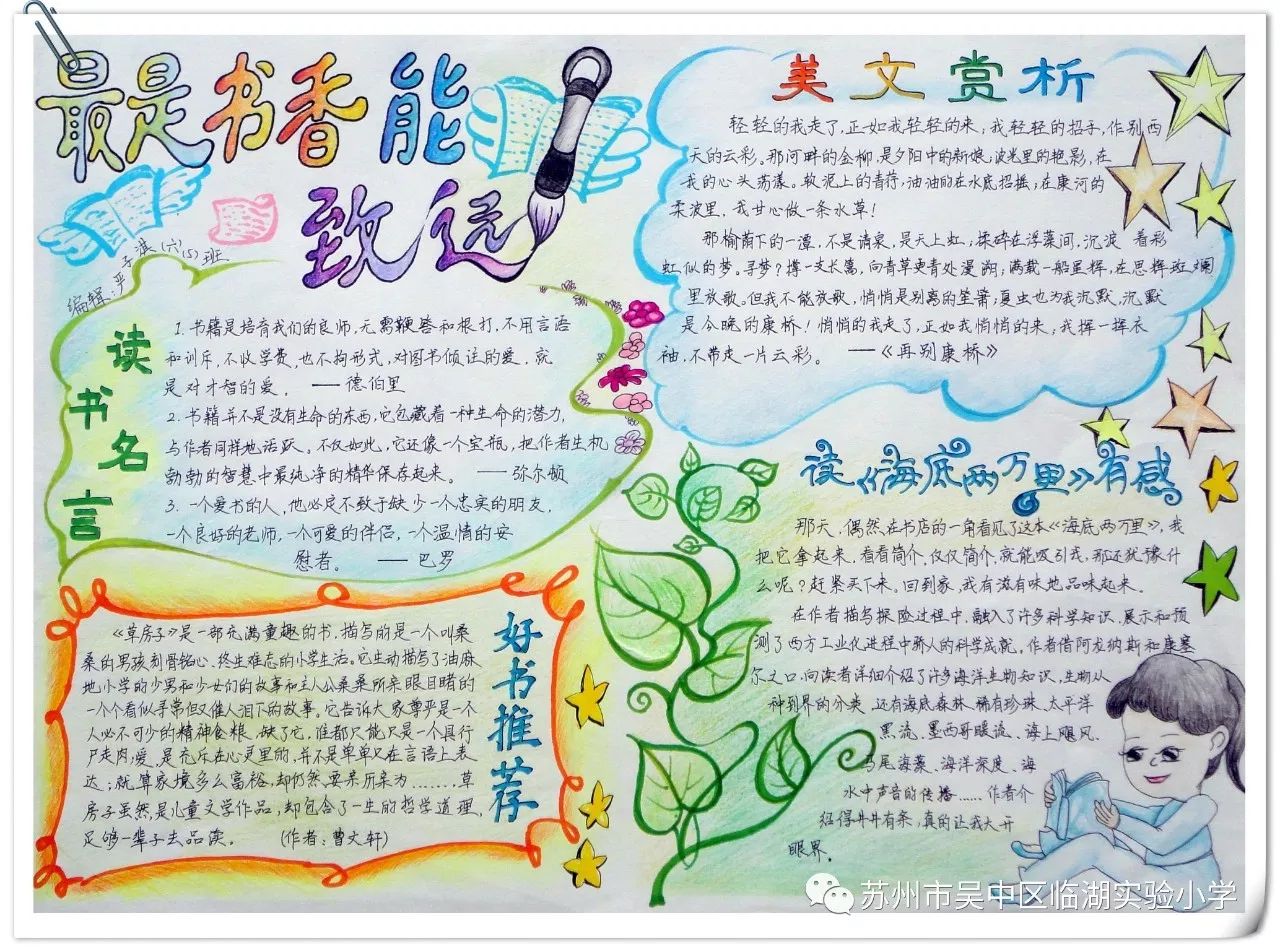 最是书香能
致远
编辑:严子淇(六)(5)班
读书名言
1.书籍是培育我们的良师,无需鞭笞和根打,不用言语
和训斥,不收学费,也不拘形式,对图书倾注的爱,就
是对才智的爱。——德伯里
2.书籍并不是没有生命的东西,它包藏着一种生命的潜力,
与作者同样地活跃。不仅如此,它还像一个宝瓶,把作者生机
勃勃的智慧中最纯净的精华保存起来。——弥尔顿
3.一个爱书的人,他必定不致于缺少一个忠实的朋友,
一个良好的老师,一个可爱的伴侣,一个温情的安
慰者。——巴罗
好书推荐
《草房子》是一部充满童趣的书,描写的是一个叫桑
桑的男孩刻骨铭心,终生难忘的小学生活。它生动描写了油麻
地小学的少男和少女们的故事和主人公桑桑所亲眼目睹的
一个个看似寻常但又催人泪下的故事。它告诉大家尊严是一个
人必不可少的精神食粮,缺了它,谁都只能只是一个具行
尸走肉;爱,是充斥在心更里的,并不是单单只在言语上表
达;就算家境多么富裕,却仍然要亲历亲为……,草
房子虽然是儿童文学作品,却包含了一生的哲学道理,
足够一辈子去品读。(作者:曹文轩)
美文赏析
轻轻的我走了,正如我轻轻的来;我轻轻的招手,作别西
天的云彩。那河畔的金柳,是夕阳中的新娘;波光里的艳影,在
我的心头荡漾。软泥上的青荇,油油的在水底招摇;在康河的
柔波里,我甘心做一条水草!
那榆荫下的一潭,不是清泉,是天上虹;揉碎在浮藻间,沉淀着彩
虹似的梦。寻梦?撑一支长篙,向青草更青处漫溯;满载一船星辉,在星辉斑斓
里放歌。但我不能放歌,悄悄是别离的笙箫;夏虫也为我沉默,沉默
是今晚的康桥!悄悄的我走了,正如我悄悄的来;我挥一挥衣
袖,不带走一片云彩。——《再别康桥》
读《海底两万里》有感
那天,偶然在书店的一角看见了这本《海底两万里》,我
把它拿起来,看看简介,仅仅简介就能吸引我,那还犹豫什
么呢?赶紧买下来。回到家,我有滋有味地品味起来。
在作者描写探险过程中,融入了许多科学知识,展示和预
测了西方工业化进程中骄人的科学成就。作者借阿龙纳斯和康塞
尔之口,向读者详细介绍了许多海洋生物知识,生物从
种到界的分类,还有海底森林、稀有珍珠、太平洋
黑流、墨西哥暖流、海上飓风、
马尾海藻、海洋深度、海
水中声音的传播……作者介
绍得井井有条,真的让我大开
眼界。
苏州市吴中区临湖实验小学